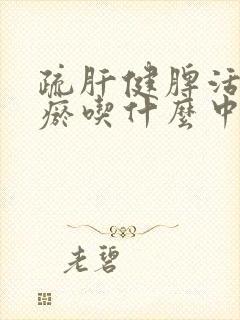 疏肝健脾活
瘀喫什麼中
老碧